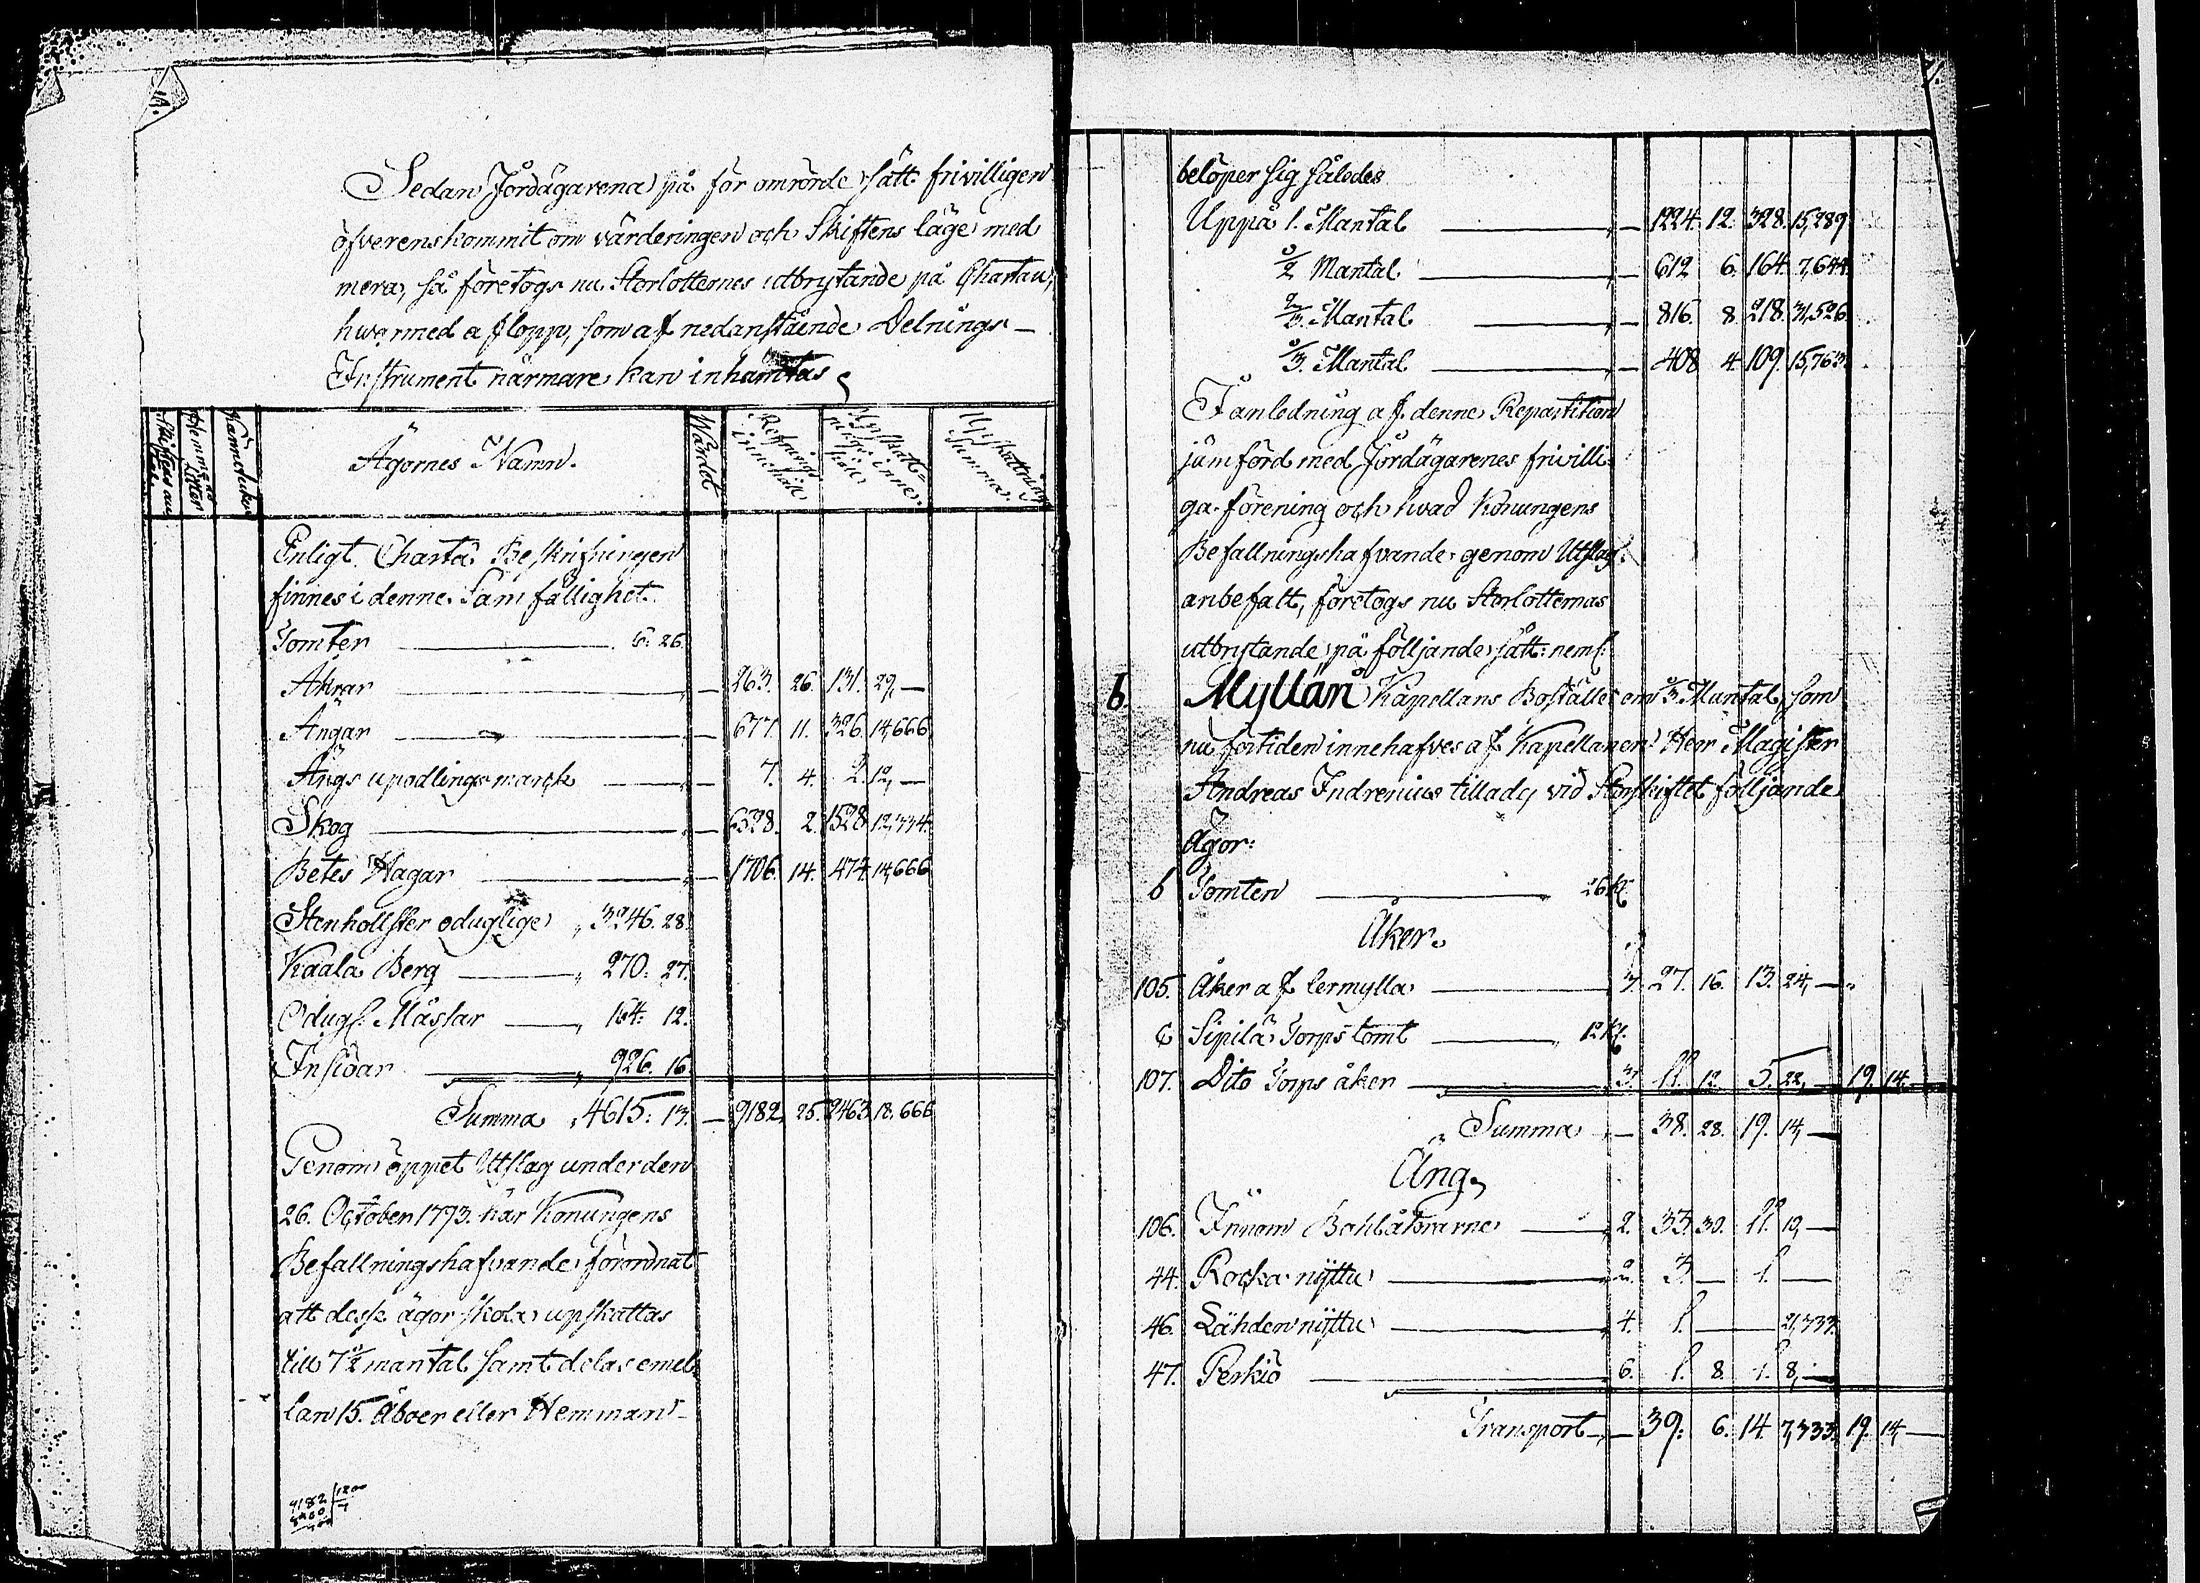 Sedan Jordägarena på för omrörde sätt frivilligen
öfverenskommit om värderingen och Skiftens läge med
mera, så företogs nu Storlotternes utbrytande på Chartan,
hwarmed aflopp, som af nedanstående Delnings-
Instrument närmare kan inhämtas
Ägornes Namn. Wärdet Refnings innehåll Upskattnings innehåll Upskattnings Summa.
Enligt Charta Beskrifningen
finnes i denne Samfällighet.
Tomter 6. 26.
Åkrar — 263. 26. 131. 29,—
Ängar — 677. 11. 326. 14,666
Ängs upodlings marck — 7. 4. 2. 12,—
Skog — 6528. 2. 1528. 12,334.
Betes Hagar — 1706. 14. 474. 14,666
Stenhollster oduglige „ 3246. 28.
Kaala Berg „ 270. 27.
Odugl. Måssar „ 164. 12.
Insiöar „ 926. 16.
Summa „ 4615. 13. — 9182. 25. 2463. 18,666
Genom öppet Utslag under den
26. October 1793. har Konungens
Befallningshafvande förordnat
att desse ägor skola upskattas
till 7 1/2 mantal samt delas emel-
lan 15. Åboer eller Hemman-
belöper sig således
Uppå 1. Mantal — 1224. 12. 328. 15,289
1/2 Mantal — 612 6. 164. 7,644.
2/3. Mantal — 816. 8. 218. 31,526
1/3. Mantal — 408 4. 109. 15,763.
I anledning af denne Repartition
jämförd med Jordägarenes frivilli-
ga förening och hvad Konungens
Befallningshafvande genom Utslag
anbefalt, företogs nu Storlotternas
utbrytande på följjande sätt: neml:
b. Myllän Kapellans Boställe om 1/3 Mantal, som
nu förtiden innehafves af Kapellanen Herr Magister
Andreas Indrenius tillades vid Storskiftet följjande
ägor:
b Tomten 26 K.
Åker.
105. Åker af lermylla 3. 27. 16. 13. 24,—
c Sipilä Torps tomt 12 K.
107. Dito Torps åker 3. 11. 12. 5. 22,— 19. 14,—
Summa — 38. 28. 19. 14,—
Äng.
106. Innom Bohlåkrarne 2. 33. 30. 11. 10,—
44. Rocka nÿttu 2. 3. — 1. —
46. Lähden nÿttu 4. 1. — 21,333.
47. Perkiö 6. 1. 8. 1. 8,—
Transport — 39. 6. 14 7,333. 19. 14,—